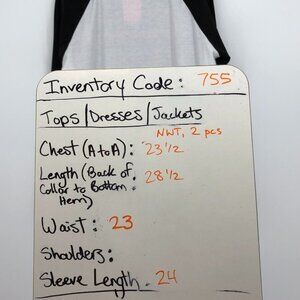 Inventory Code: 755
Tops/Dresses/Jackets
NWT, 2 pcs
Chest (A to A): 23 1/2
Length (Back of
Collar to Bottom
Hem): 28 1/2
Waist: 23
Shoulders:
Sleeve Length. 24